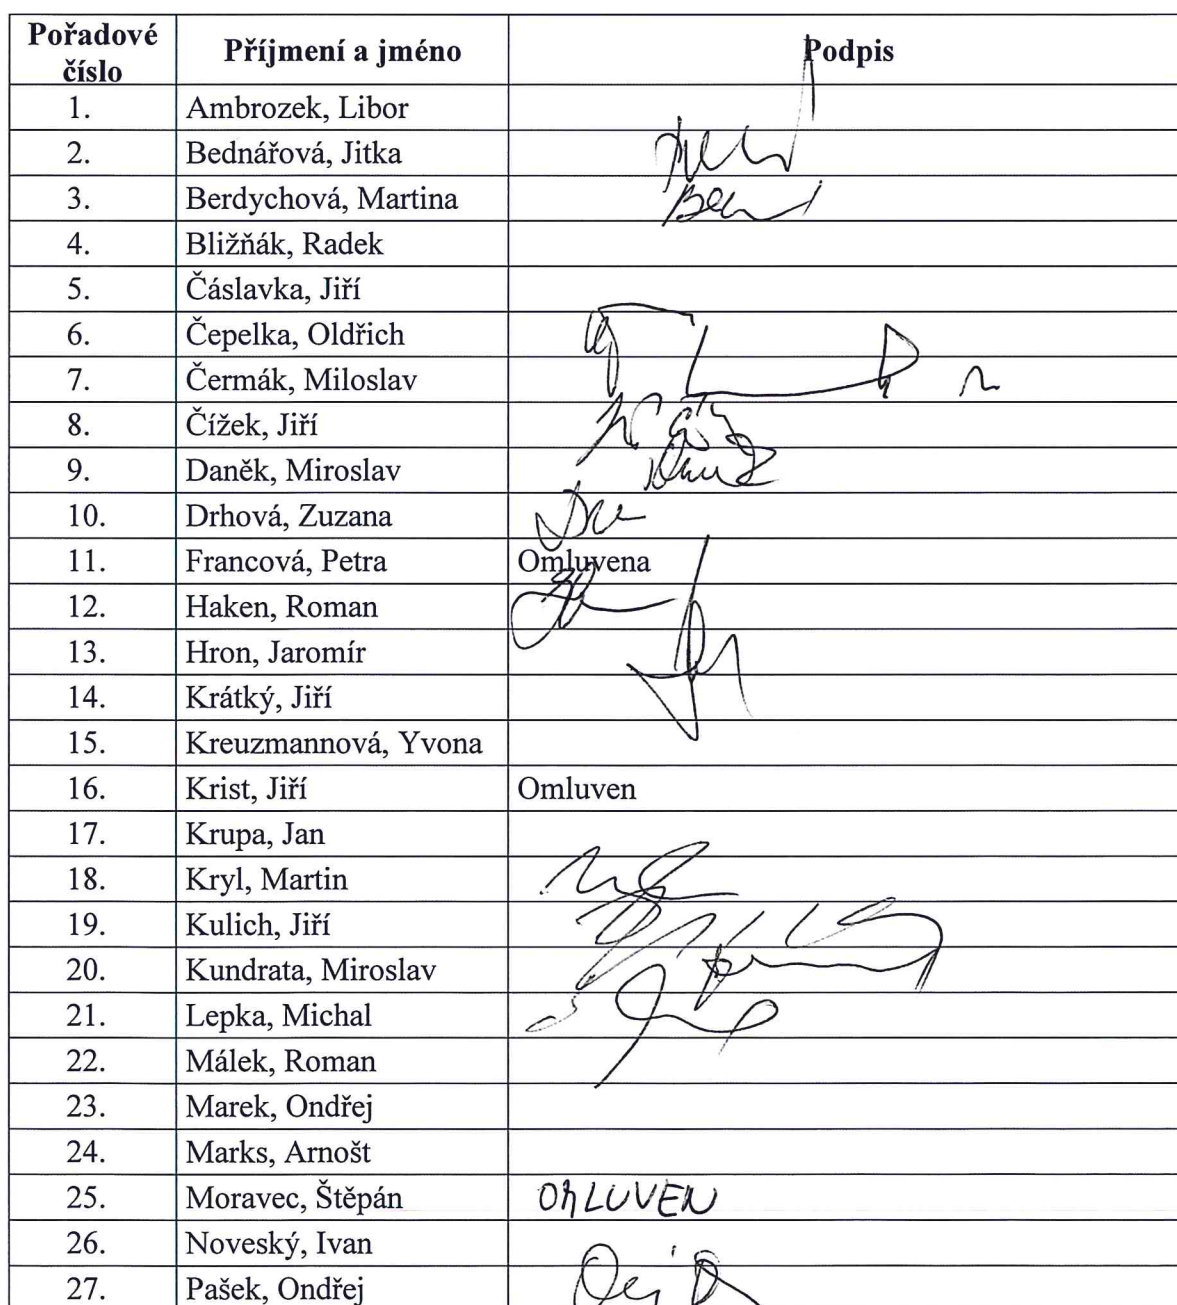 Pořadové číslo Příjmení a jméno Podpis
1. Ambrozek, Libor
2. Bednářová, Jitka
3. Berdychová, Martina
4. Bližňák, Radek
5. Čáslavka, Jiří
6. Čepelka, Oldřich
7. Čermák, Miloslav
8. Čížek, Jiří
9. Daněk, Miroslav
10. Drhová, Zuzana
11. Francová, Petra Omluvena
12. Haken, Roman
13. Hron, Jaromír
14. Krátký, Jiří
15. Kreuzmannová, Yvona
16. Krist, Jiří Omluven
17. Krupa, Jan
18. Kryl, Martin
19. Kulich, Jiří
20. Kundrata, Miroslav
21. Lepka, Michal
22. Málek, Roman
23. Marek, Ondřej
24. Marks, Arnošt
25. Moravec, Štěpán OMLUVEN
26. Noveský, Ivan
27. Pašek, Ondřej